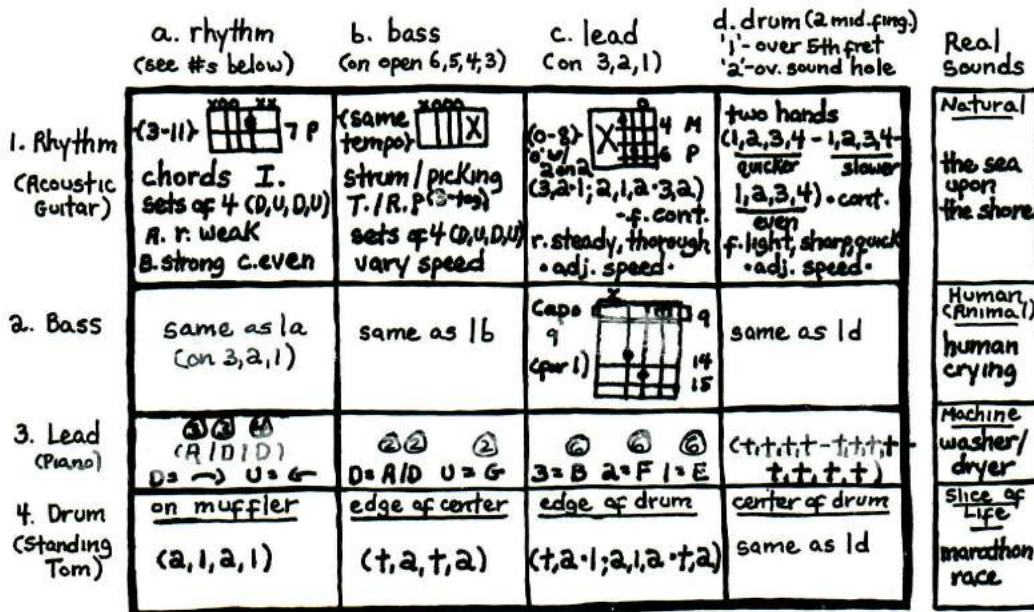 a. rhythm
(see #s below)
b. bass
(on open 6,5,4,3)
c. lead
(on 3,2,1)
d. drum (2 mid. fing.)
'1'- over 5th fret
'2'-ov. sound hole
Real
Sounds
1. Rhythm
(Acoustic
Guitar)
xoo xx
(3-11) 7 P
chords I.
sets of 4 (D,U,D,U)
A. r. weak
B. strong c. even
xooo
(same
tempo) X
strum/picking
T./R.P
sets of 4 (D,U,D,U)
vary speed
o
(0-8) X 4 M
6 P
(3,2·1; 2,1,2·3,2)
-f. cont.
r. steady, thorough
·adj. speed·
two hands
(1,2,3,4 - 1,2,3,4-
quicker slower
1,2,3,4)·cont.
even
f. light, sharp, quick
·adj. speed·
Natural
the sea
upon
the shore
2. Bass
same as 1a
(on 3,2,1)
same as 1b
x
Capo 9
9
(for 1) 14
15
same as 1d
Human
(Animal)
human
crying
3. Lead
(Piano)
3 3
(A/D/D)
D= U = G
2 2 2
D= A/D U = G
6 6 6
3 = B 2 = F 1 = E
(t,t,t,t - t,t,t,t-
t,t,t,t)
Machine
washer/
dryer
4. Drum
(Standing
Tom)
on muffler
(2,1,2,1)
edge of center
(t,2,t,2)
edge of drum
(t,2·1; 2,1,2·t,2)
center of drum
same as 1d
Slice of
Life
marathon
race